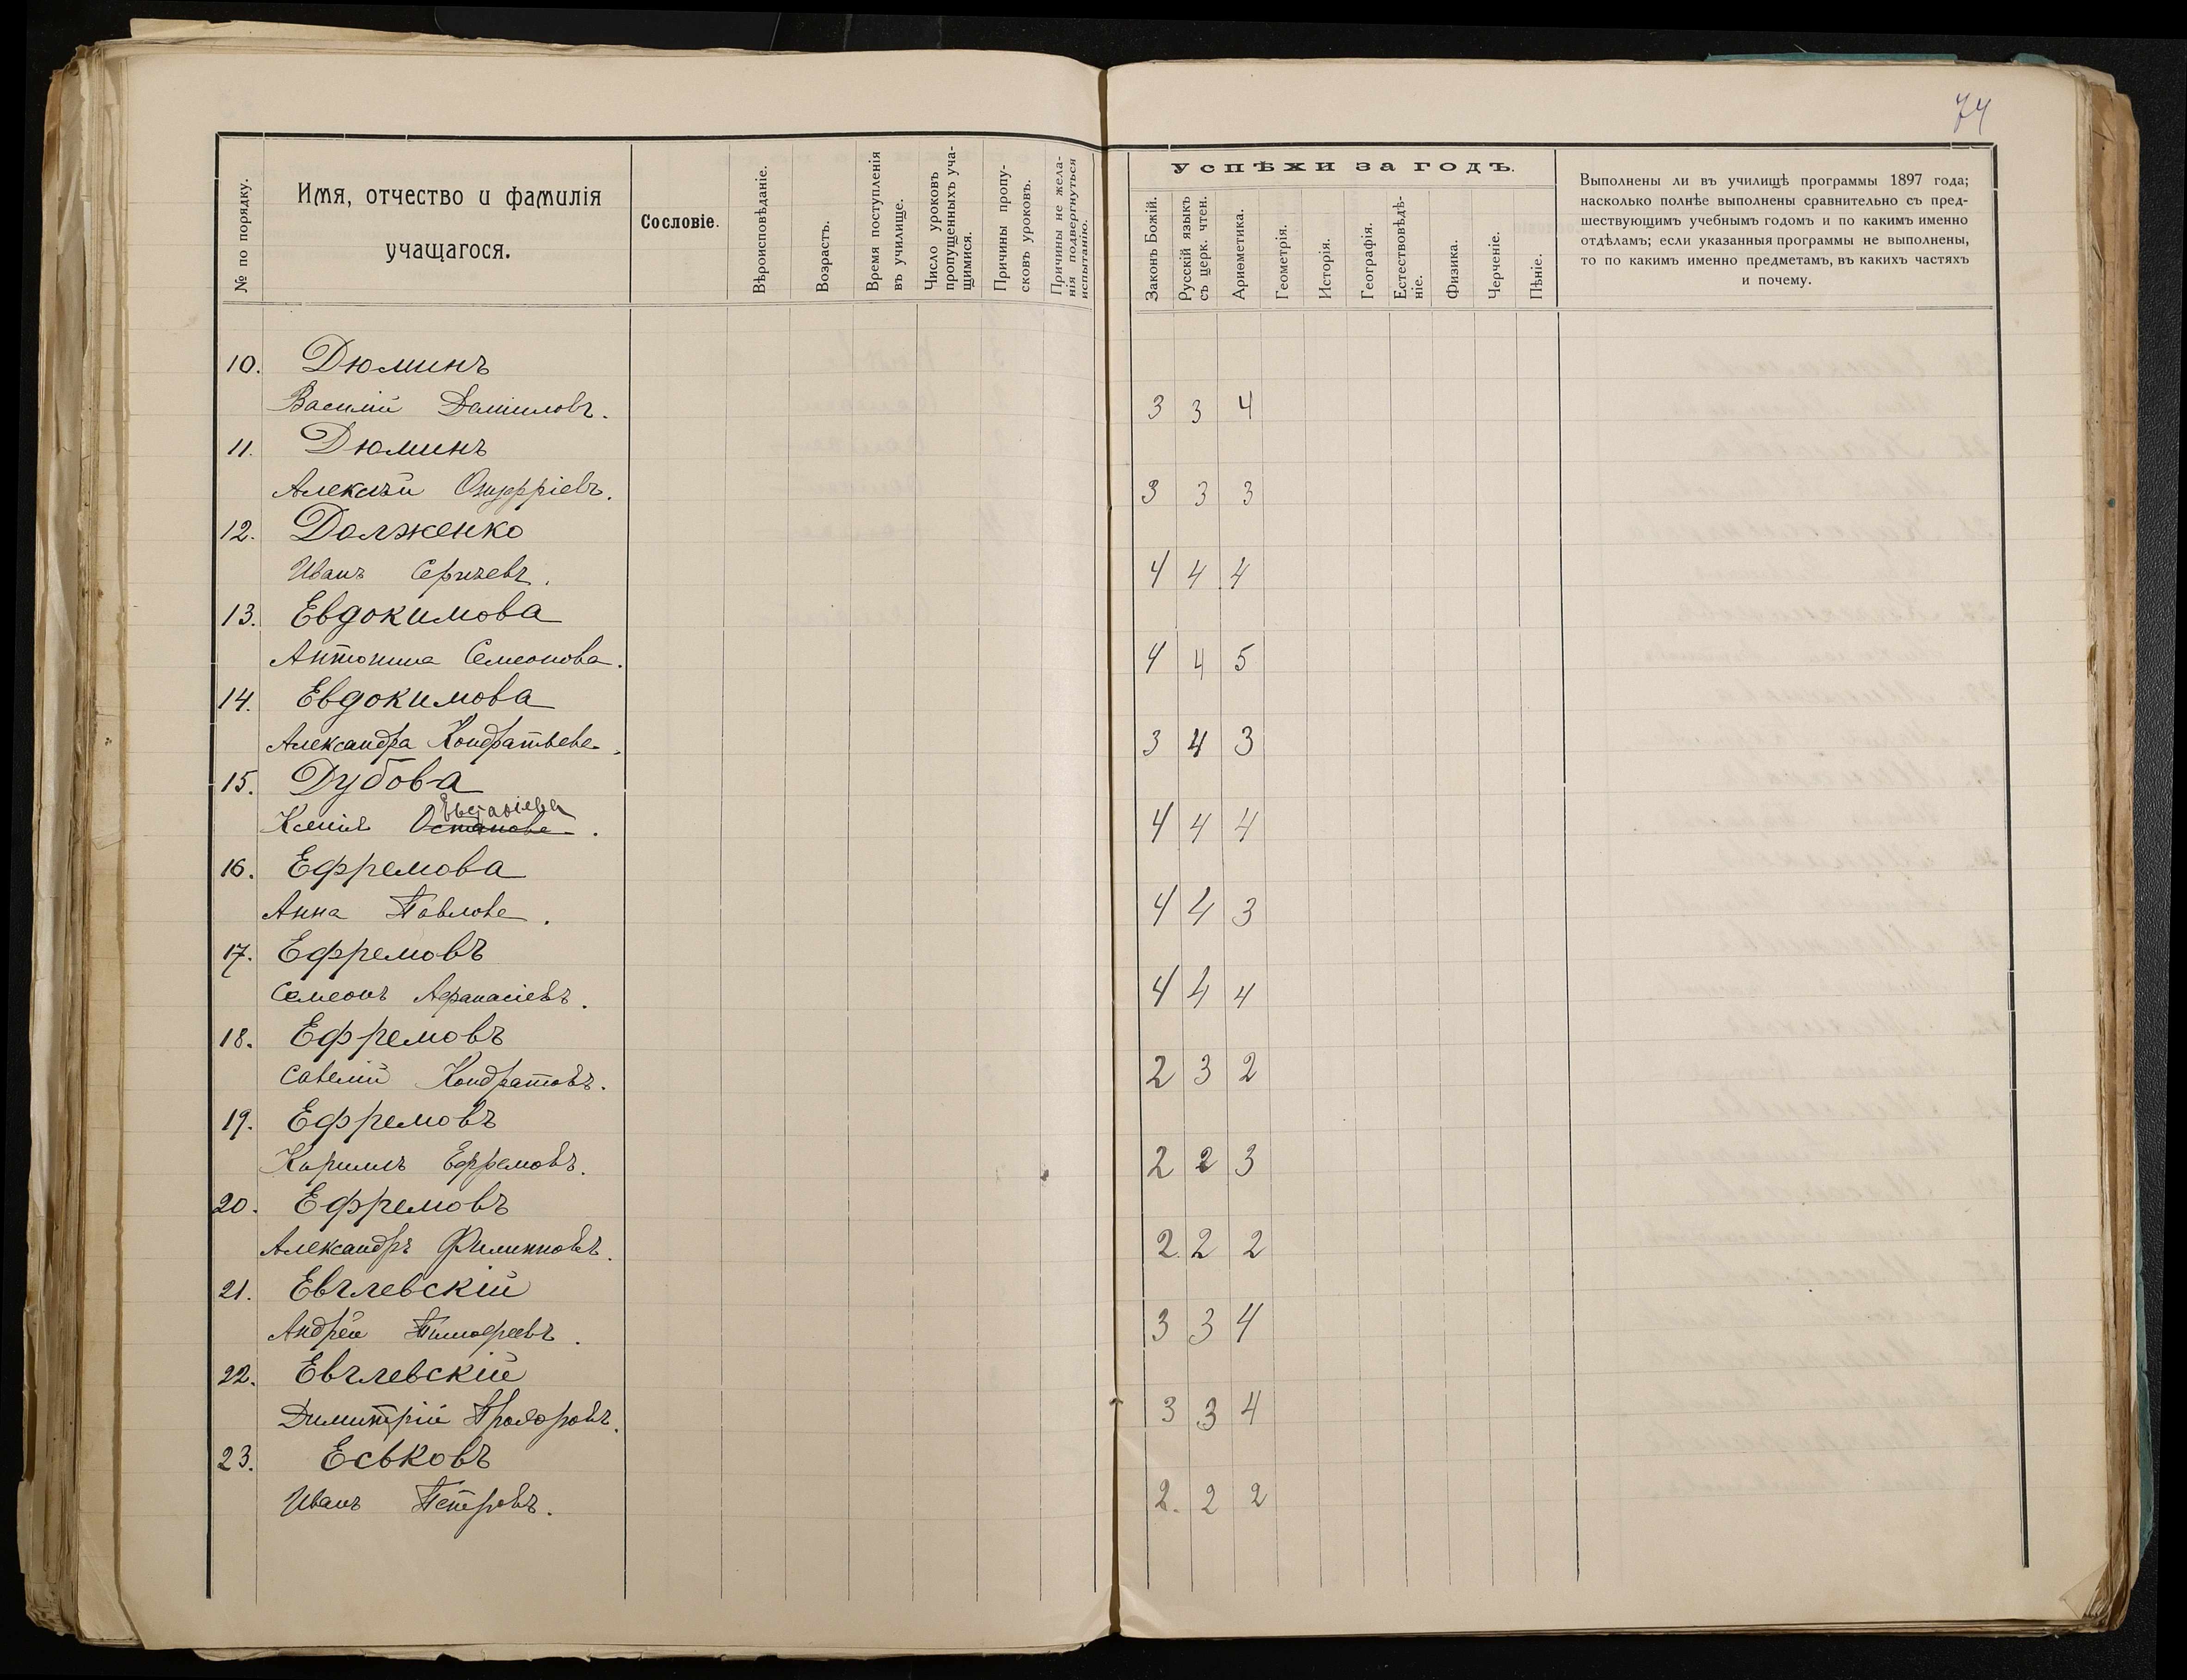 74
№ по порядку.
Имя, отчество и фамилія
учащагося.
Сословіе.
Вѣроисповѣданіе.
Возрастъ.
Время поступленія
въ училище.
Число уроковъ
пропущенныхъ уча-
щимися.
Причины пропу-
сковъ уроковъ.
Причины не жела-
нія подвергнуться
испытанію.
УСПѢХИ ЗА ГОДЪ.
Законъ Божій.
Русскій языкъ
съ церк. чтен.
Ариѳметика.
Геометрія.
Исторія.
Географія.
Естествовѣдѣ-
ніе.
Физика.
Черченіе.
Пѣніе.
Выполнены ли въ училищѣ программы 1897 года;
насколько полнѣе выполнены сравнительно съ пред-
шествующимъ учебнымъ годомъ и по какимъ именно
отдѣламъ; если указанныя программы не выполнены,
то по какимъ именно предметамъ, въ какихъ частяхъ
и почему.
10. Дюминъ
Василій Даниловъ. 3 3 4
11. Дюминъ
Алексѣй Онуфріевъ. 3 3 3
12. Долженко
Иванъ Сергѣевъ. 4 4 4
13. Евдокимова
Антонина Семеонова. 4 4 5
14. Евдокимова
Александра Кондратьева. 3 4 3
15. Дубова
Евстафіева
Ксенія Остапова. 4 4 4
16. Ефремова
Анна Павлова. 4 4 3
17. Ефремовъ
Семеонъ Афанасіевъ. 4 4 4
18. Ефремовъ
Савелій Кондратовъ. 2 3 2
19. Ефремовъ
Кириллъ Ефремовъ. 2 2 3
20. Ефремовъ
Александръ Филипповъ. 2. 2 2
21. Евглевскій
Андрей Тимофеевъ. 3 3 4
22. Евглевскій
Димитрій Прохоровъ. 3 3 4
23. Еськовъ
Иванъ Петровъ. 2. 2 2